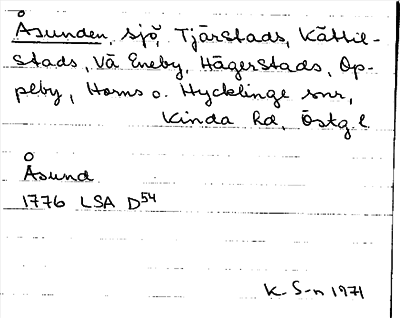 Åsunden, sjö, Tjärstads, Kättil-
stads, Vä Eneby, Hägerstads, Op-
peby, Horns o. Hycklinge snr,
Kinda hd, Östg l
Åsund
1776 LSA D54
K. S-n 1971